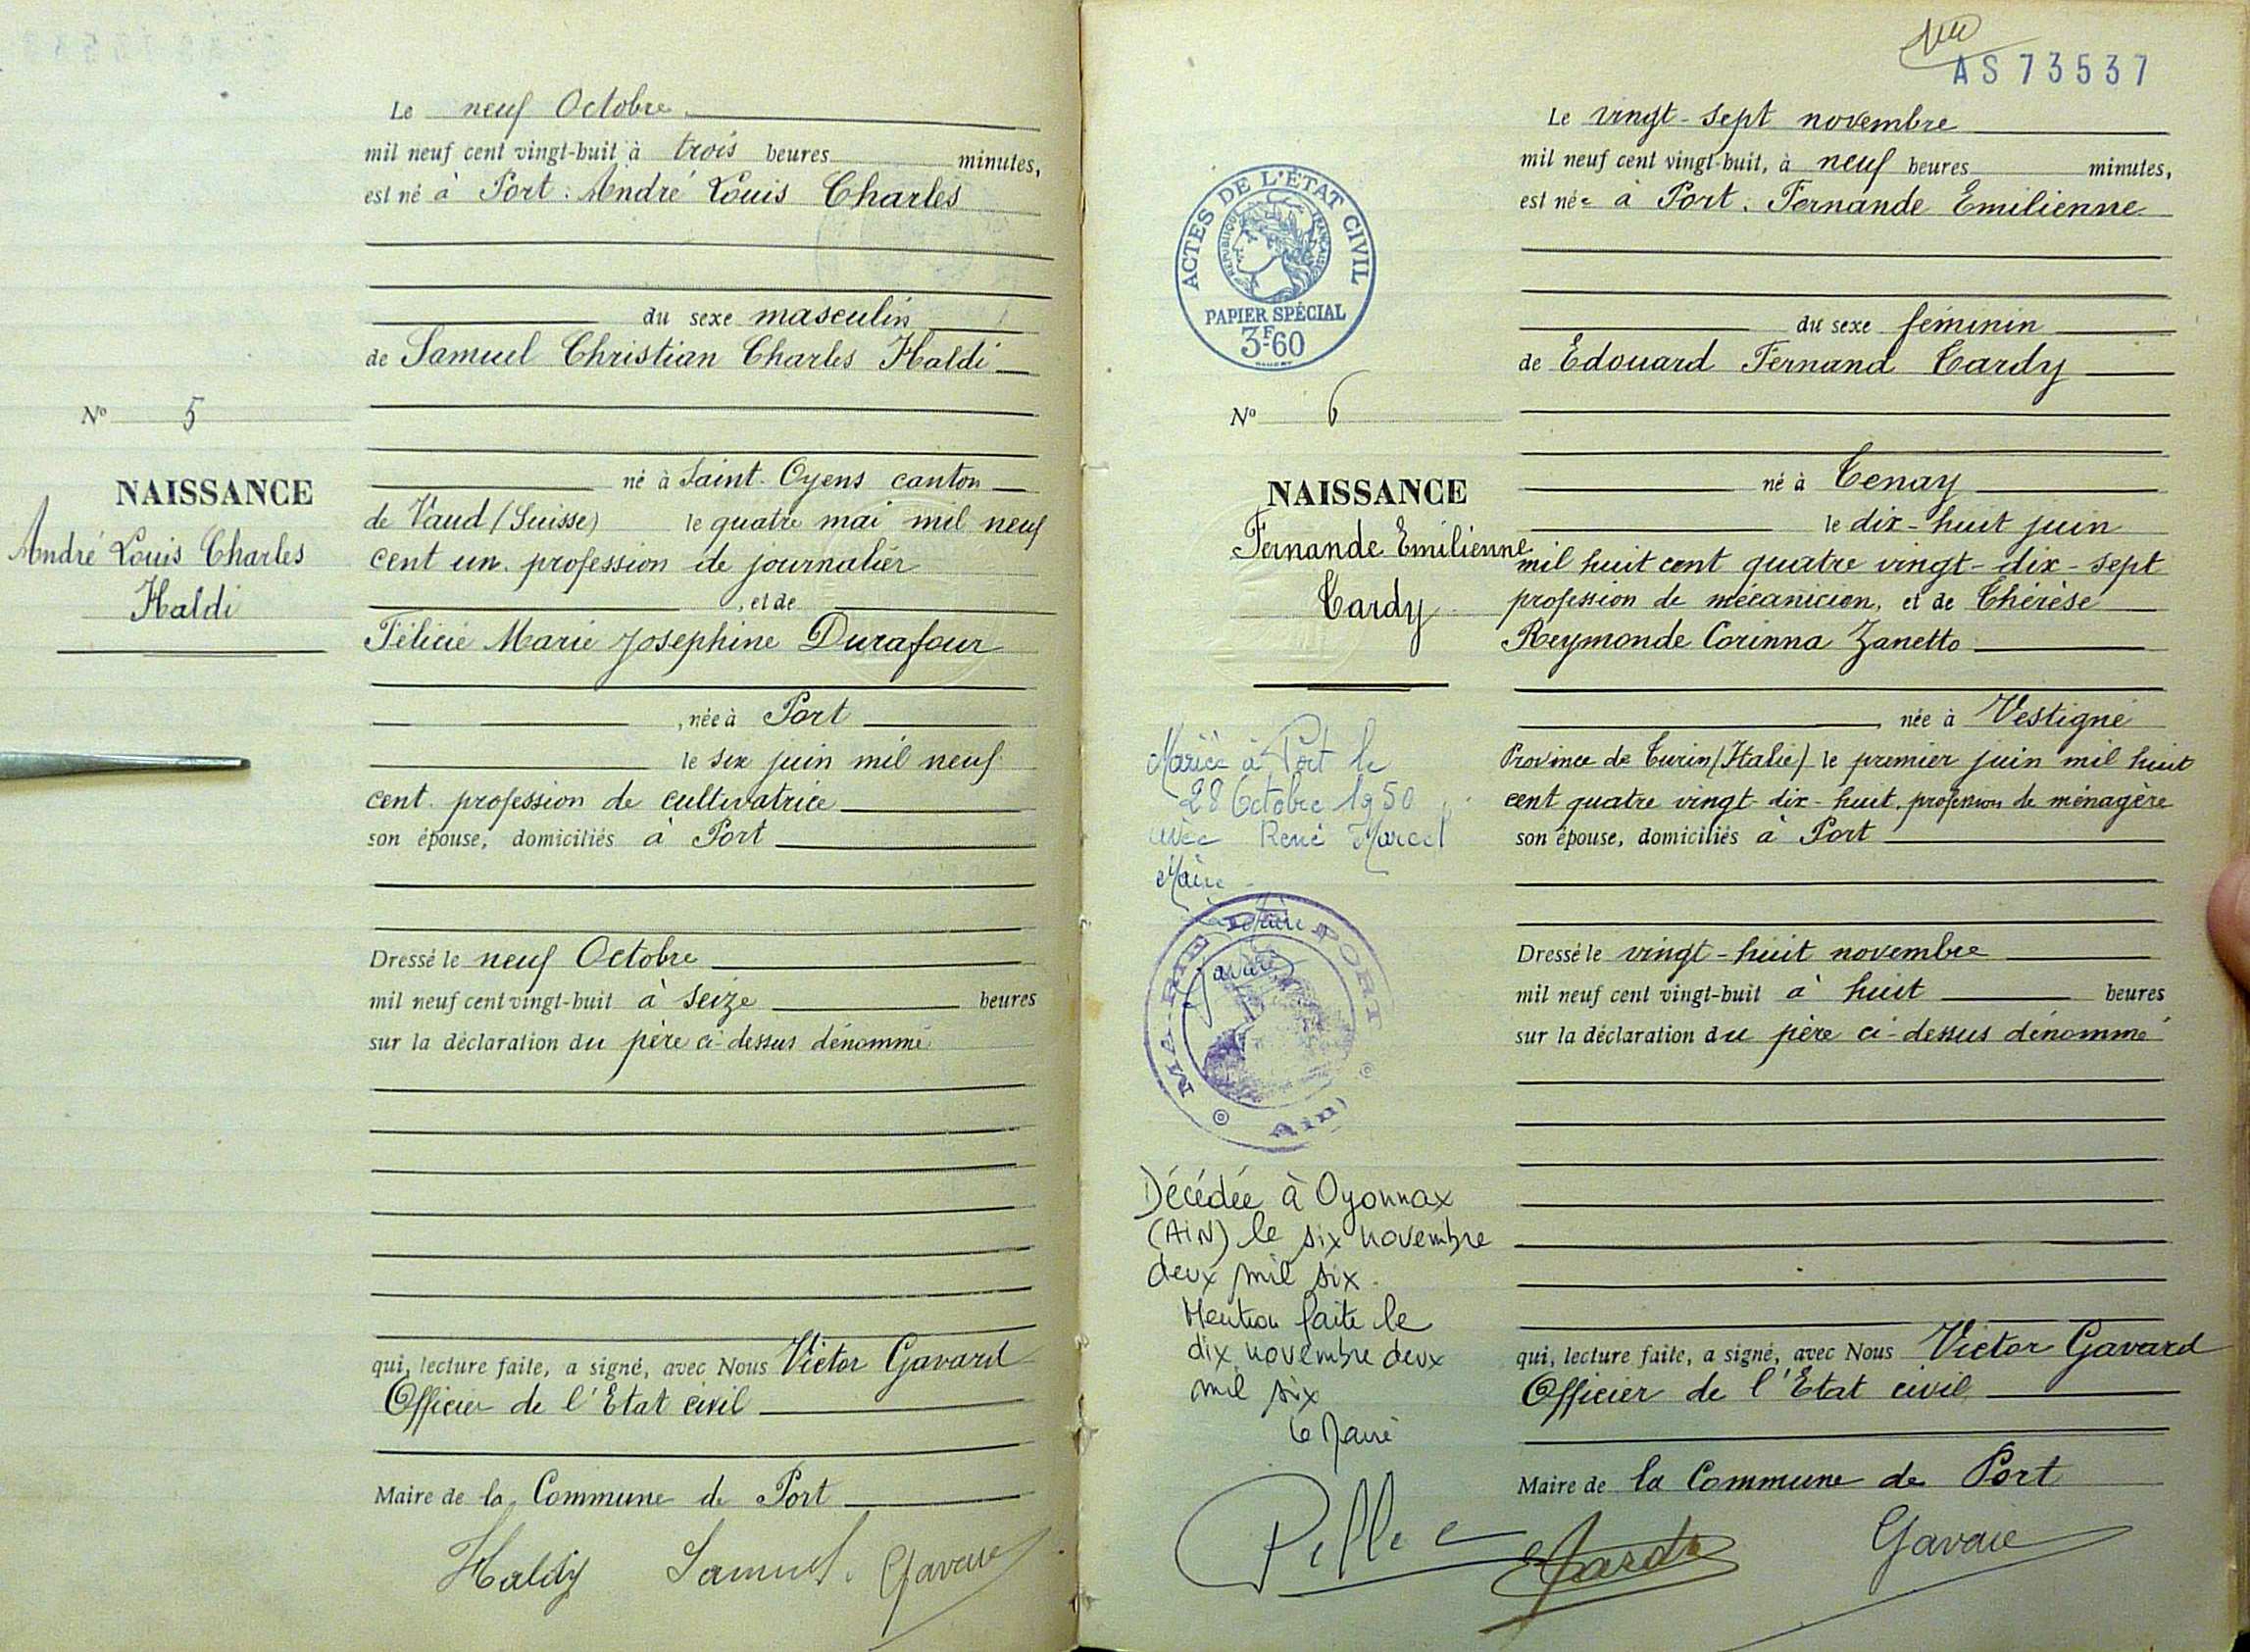 Le neuf Octobre
mil neuf cent vingt-huit à trois heures minutes,
est né à Port. André Louis Charles
du sexe masculin
de Samuel Christian Charles Haldi
né à Saint-Oyens canton
de Vaud (Suisse) le quatre mai mil neuf
cent un. profession de journalier
, et de
Félicie Marie Josephine Durafour
, née à Port
le six juin mil neuf
cent. profession de cultivatrice
son épouse, domiciliés à Port
Dressé le neuf Octobre
mil neuf cent vingt-huit à seize heures
sur la déclaration du père ci-dessus dénommé
qui, lecture faite, a signé, avec Nous Victor Gavard
Officier de l'Etat civil
Maire de la Commune de Port
Haldy Samuel. Gavard
N° 5
NAISSANCE
André Louis Charles
Haldi
AS 73537
Le vingt-sept novembre
mil neuf cent vingt-huit, à neuf heures minutes,
est née à Port. Fernande Emilienne
du sexe féminin
de Edouard Fernand Tardy
né à Tenay
le dix-huit juin
mil huit cent quatre vingt-dix-sept
profession de mécanicien, et de Thérèse
Reymonde Corinna Zanetto
née à Vestigné
Province de Turin (Italie) le premier juin mil huit
cent quatre vingt-dix-huit. profession de ménagère
son épouse, domiciliés à Port
Dressé le vingt-huit novembre
mil neuf cent vingt-huit à huit heures
sur la déclaration du père ci-dessus dénommé
qui, lecture faite, a signé, avec Nous Victor Gavard
Officier de l'Etat civil
Maire de la Commune de Port
Tardy Gavard
ACTES DE L'ÉTAT CIVIL
RÉPUBLIQUE FRANÇAISE
PAPIER SPÉCIAL
3F60
N° 6
NAISSANCE
Fernande Emilienne
Tardy
Mariée à Port le
28 Octobre 1950
avec René Marcel
Maire
MAIRIE DE PORT
(Ain)
Décédée à Oyonnax
(AIN) le six novembre
deux mil six.
Mention faite le
dix novembre deux
mil six
Le Maire